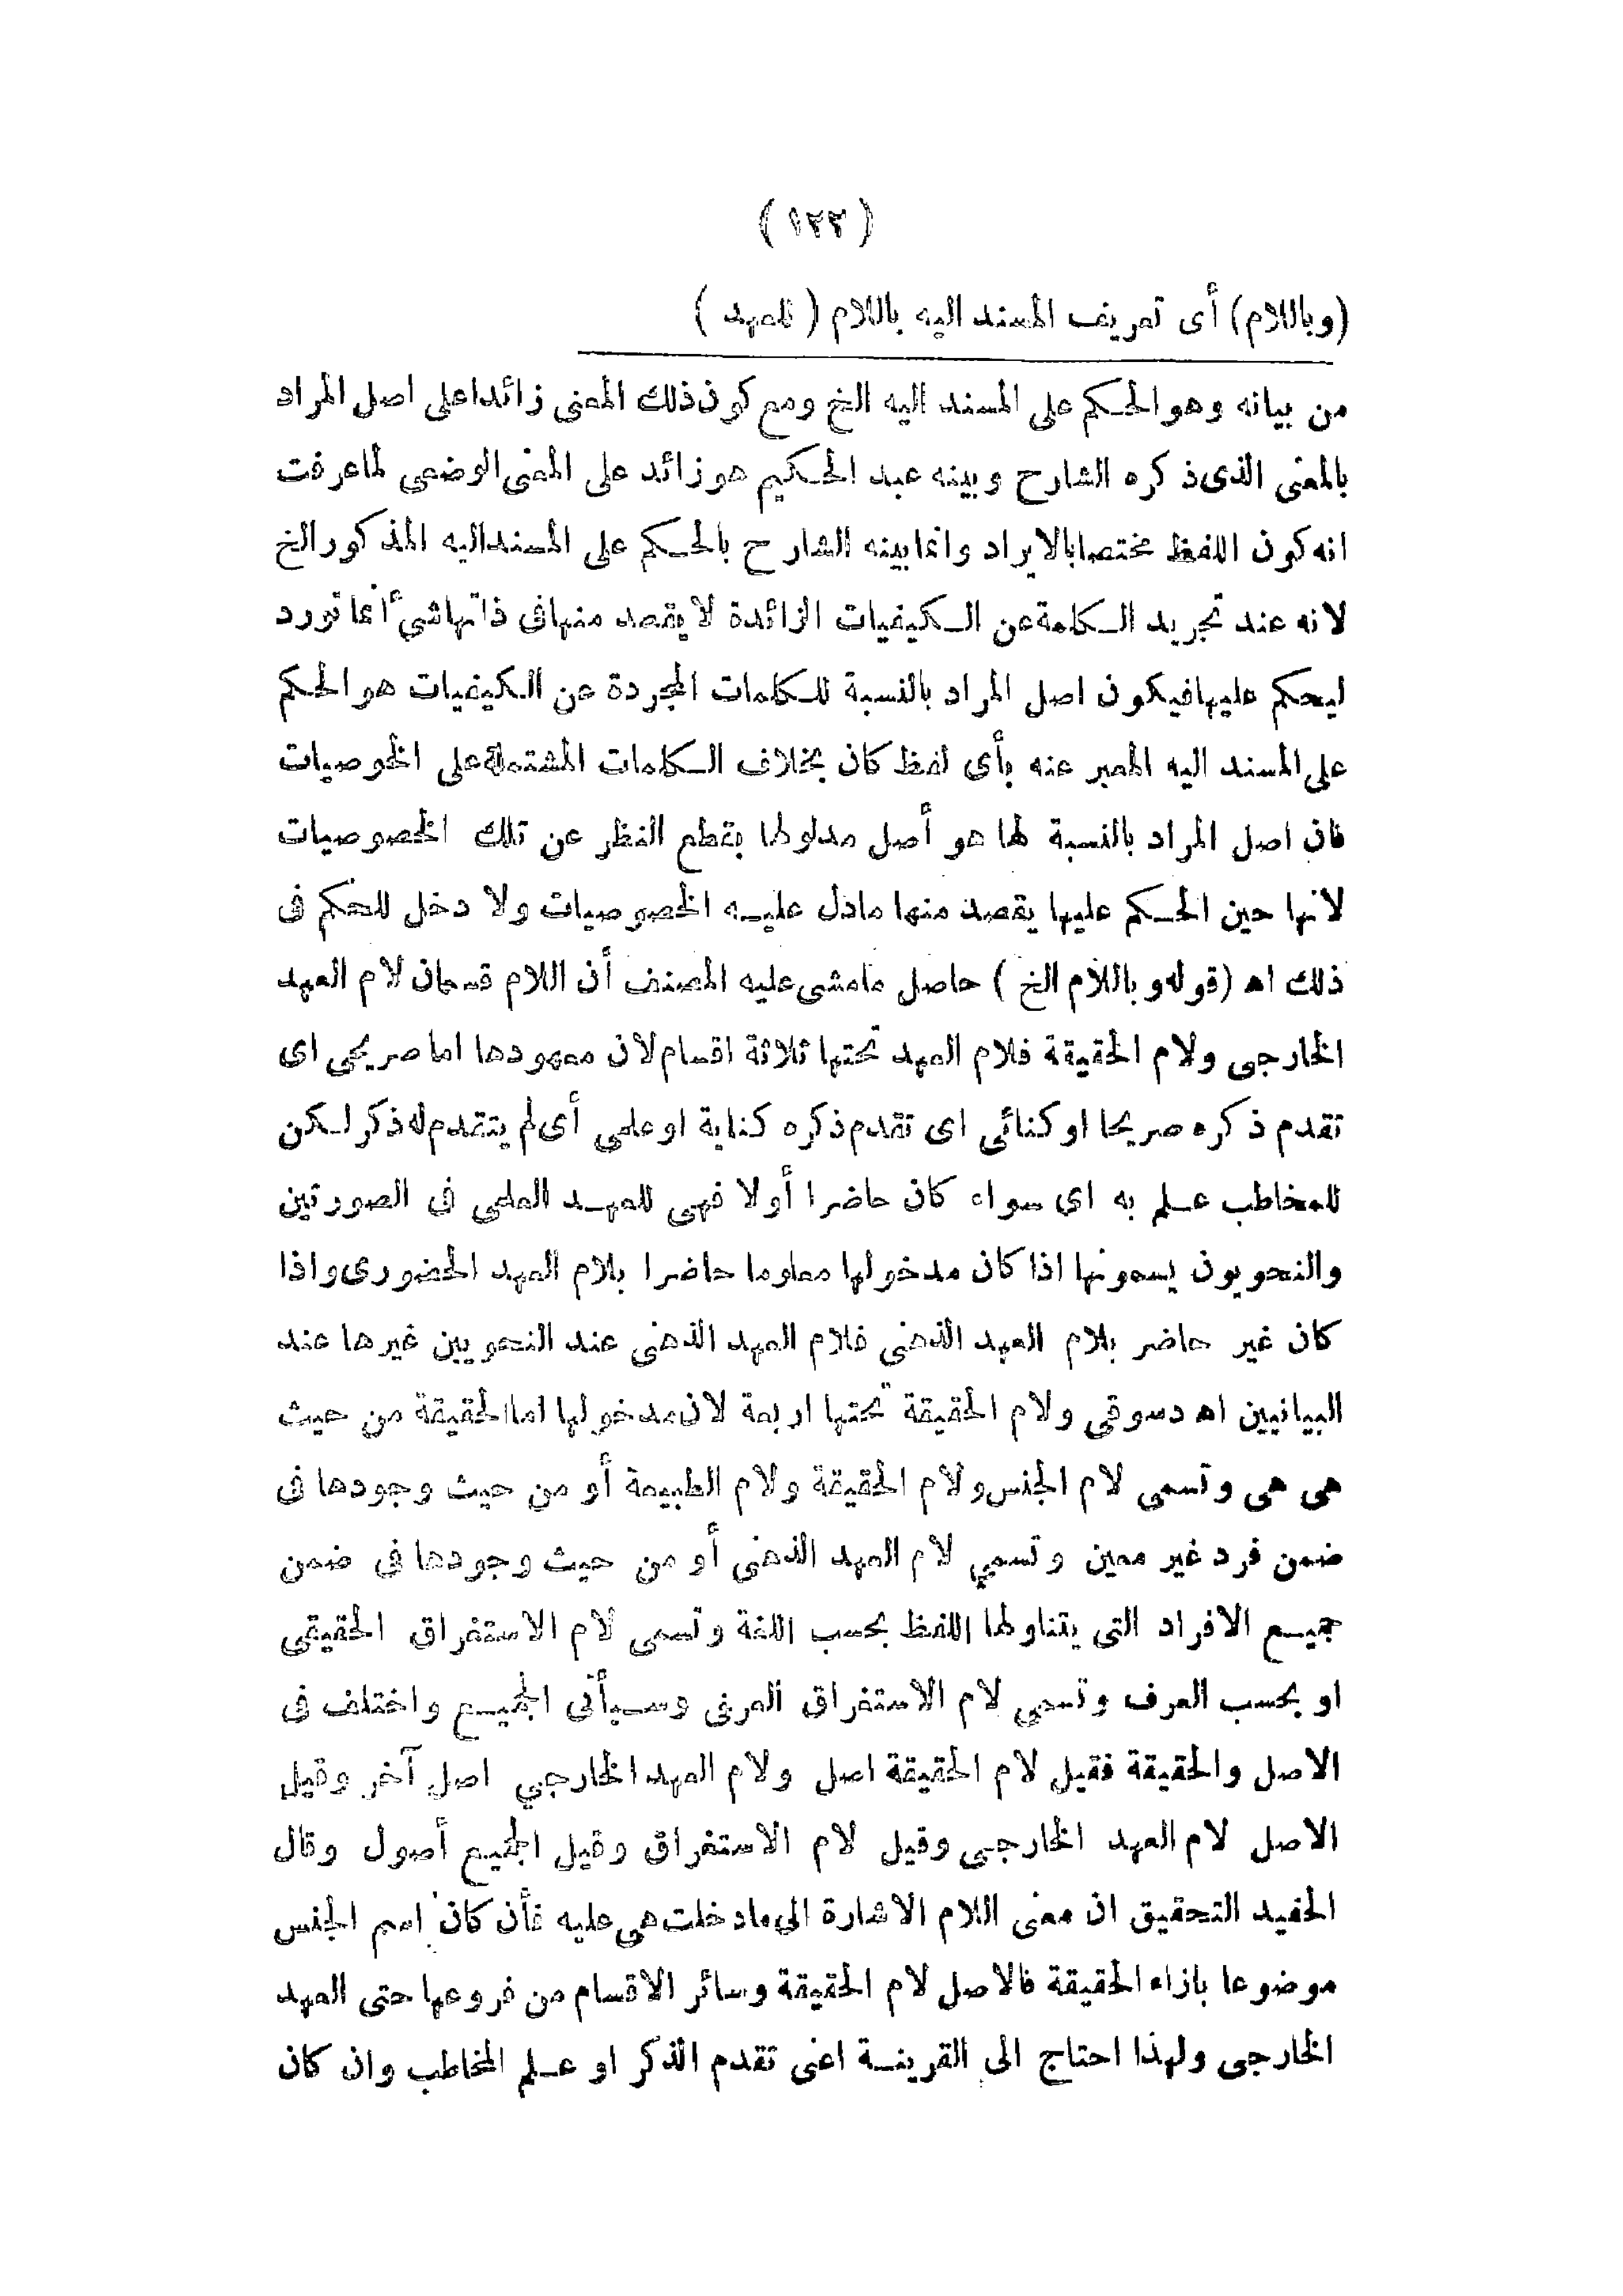 ( ١٢٢ )
(وباللام) أى تعريف المسند اليه باللام ( للعهد )
من بيانه وهو الحكم على المسند اليه الخ ومع كون ذلك المعنى زائدا على اصل المراد
بالمعنى الذى ذكره الشارح وبينه عبد الحكيم هو زائد على المعنى الوضعى لما عرفت
انه كون اللفظ مختصا بالايراد وانما بينه الشارح بالحكم على المسند اليه المذكور الخ
لانه عند تجريد الكلمة عن الكيفيات الزائدة لا يقصد منها فى ذاتها شئ أنما تورد
ليحكم عليها فيكون اصل المراد بالنسبة للكلمات المجردة عن الكيفيات هو الحكم
على المسند اليه المعبر عنه بأى لفظ كان بخلاف الكلمات المشتملة على الخوصيات
فان اصل المراد بالنسبة لها هو أصل مدلولها بقطع النظر عن تلك الخصوصيات
لانها حين الحكم عليها يقصد منها مادل عليه الخصوصيات ولا دخل للحكم فى
ذلك اه (قوله وباللام الخ ) حاصل مامشى عليه المصنف أن اللام قسمان لام العهد
الخارجى ولام الحقيقة فلام العهد تحتها ثلاثة اقسام لان معهودها اما صريحى اى
تقدم ذكره صريحا او كنائى اى تقدم ذكره كناية او علمى أى لم يتقدم له ذكر لكن
للمخاطب علم به اى سواء كان حاضرا أولا فهى للعهد العلمى فى الصورتين
والنحويون يسمونها اذا كان مدخولها معلوما حاضرا بلام العهد الحضورى واذا
كان غير حاضر بلام العهد الذهنى فلام العهد الذهنى عند النحويين غيرها عند
البيانيين اه دسوقى ولام الحقيقة تحتها اربعة لان مدخولها اما الحقيقة من حيث
هى هى وتسمى لام الجنس ولام الحقيقة ولام الطبيعة أو من حيث وجودها فى
ضمن فرد غير معين وتسمي لام العهد الذهنى أو من حيث وجودها فى ضمن
جميع الافراد التى يتناولها اللفظ بحسب اللغة وتسمى لام الاستغراق الحقيقى
او بحسب العرف وتسمي لام الاستغراق العرفى وسيأتى الجميع واختلف فى
الاصل والحقيقة فقيل لام الحقيقة اصل ولام العهد الخارجي اصل آخر وقيل
الاصل لام العهد الخارجى وقيل لام الاستغراق وقيل الجميع أصول وقال
الحفيد التحقيق ان معنى اللام الاشارة الى مادخلت هى عليه فأن كان اسم الجنس
موضوعا بازاء الحقيقة فالاصل لام الحقيقة وسائر الاقسام من فروعها حتى العهد
الخارجى ولهذا احتاج الى القرينة اعنى تقدم الذكر او علم المخاطب وان كان